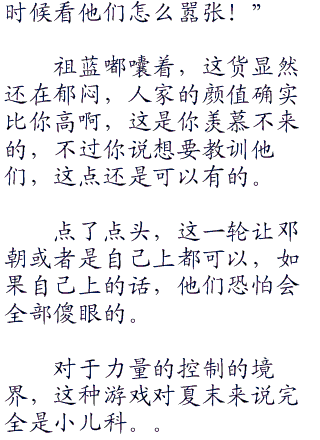 时候看他们怎么嚣张！”
祖蓝嘟囔着，这货显然
还在郁闷，人家的颜值确实
比你高啊，这是你羡慕不来
的，不过你说想要教训他
们，这点还是可以有的。
点了点头，这一轮让邓
朝或者是自己上都可以，如
果自己上的话，他们恐怕会
全部傻眼的。
对于力量的控制的境
界，这种游戏对夏末来说完
全是小儿科。。